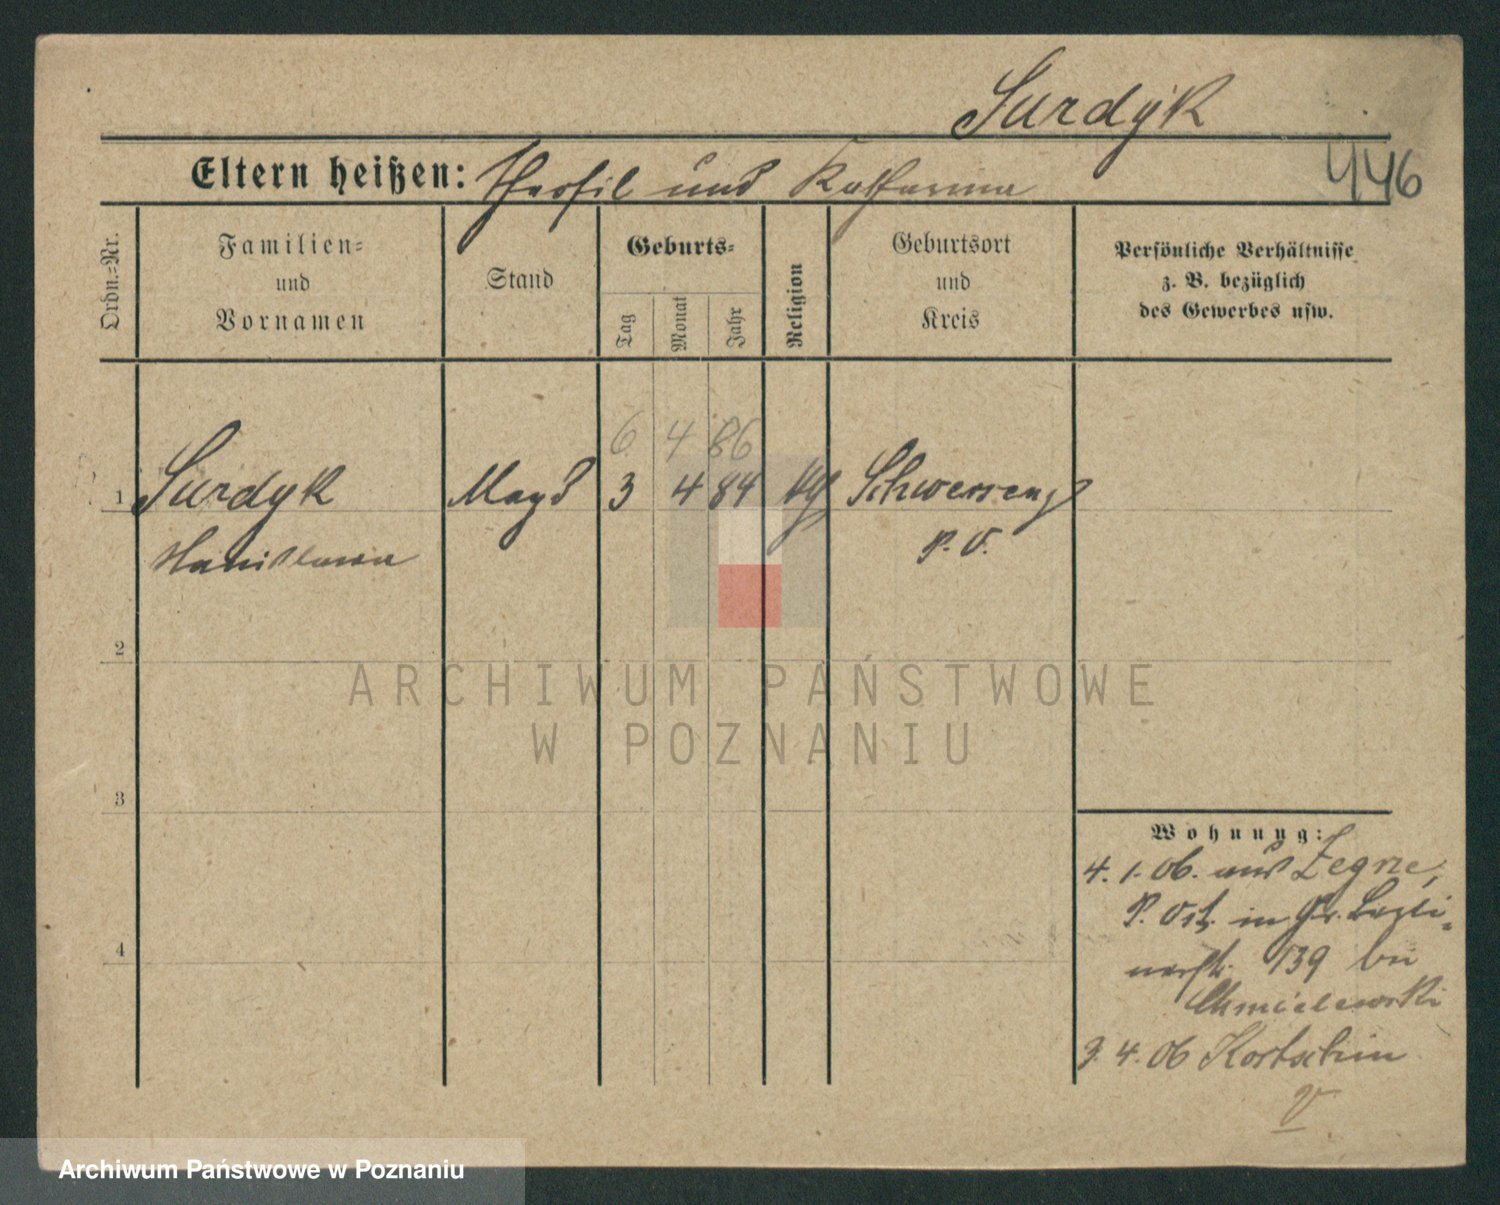 Surdyk
446
Eltern heißen: Theofil und Katharina
Ordn.-Nr.
Familien-
und
Vornamen
Stand
Geburts-
Tag
Monat
Jahr
Religion
Geburtsort
und
Kreis
Persönliche Verhältnisse
z. B. bezüglich
des Gewerbes usw.
6 4 86
1 Surdyk Magd 3 4 84 kath Schwersenz
Stanislawa P. O.
2
ARCHIWUM PAŃSTWOWE
W POZNANIU
3
Wohnung:
4. 1. 06. aus Zegrze,
P. Ost. in Gr. Berli-
4
nerstr. 139 bei
Chmielewski
3. 4. 06 Kortschin
V
Archiwum Państwowe w Poznaniu